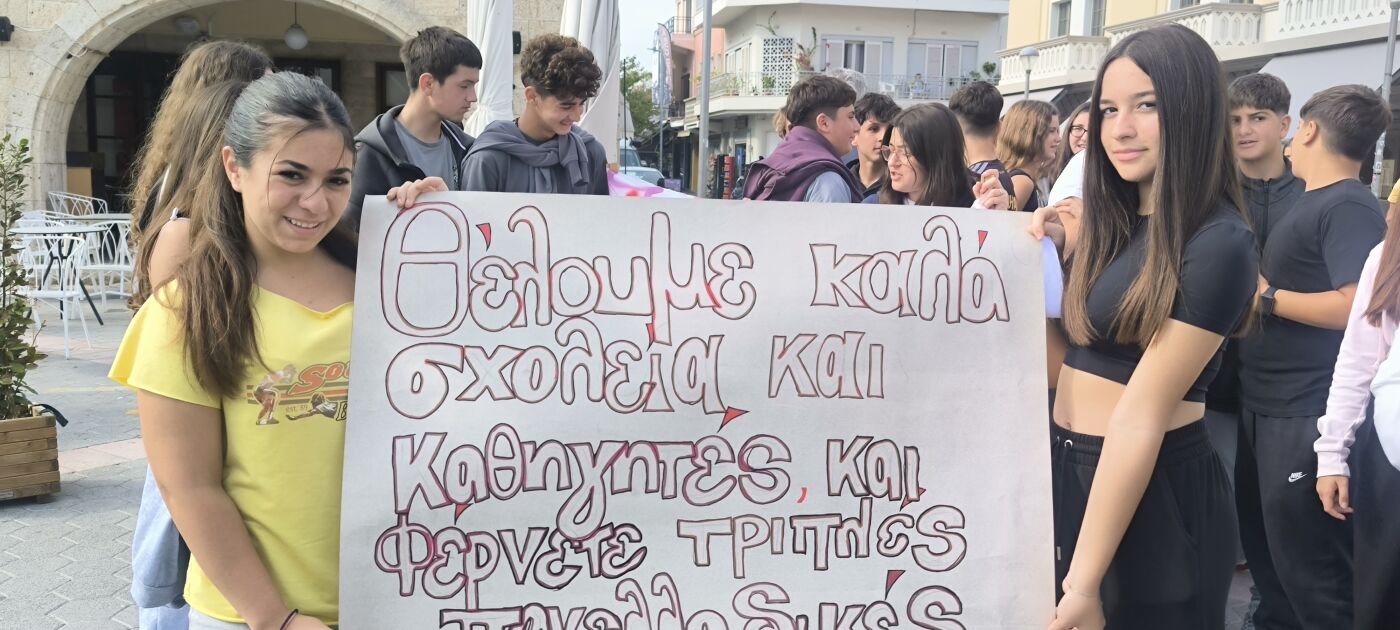 Θέλουμε καλά
σχολεία και
καθηγητές, και
φέρνετε τριπλές
πανελλαδικές